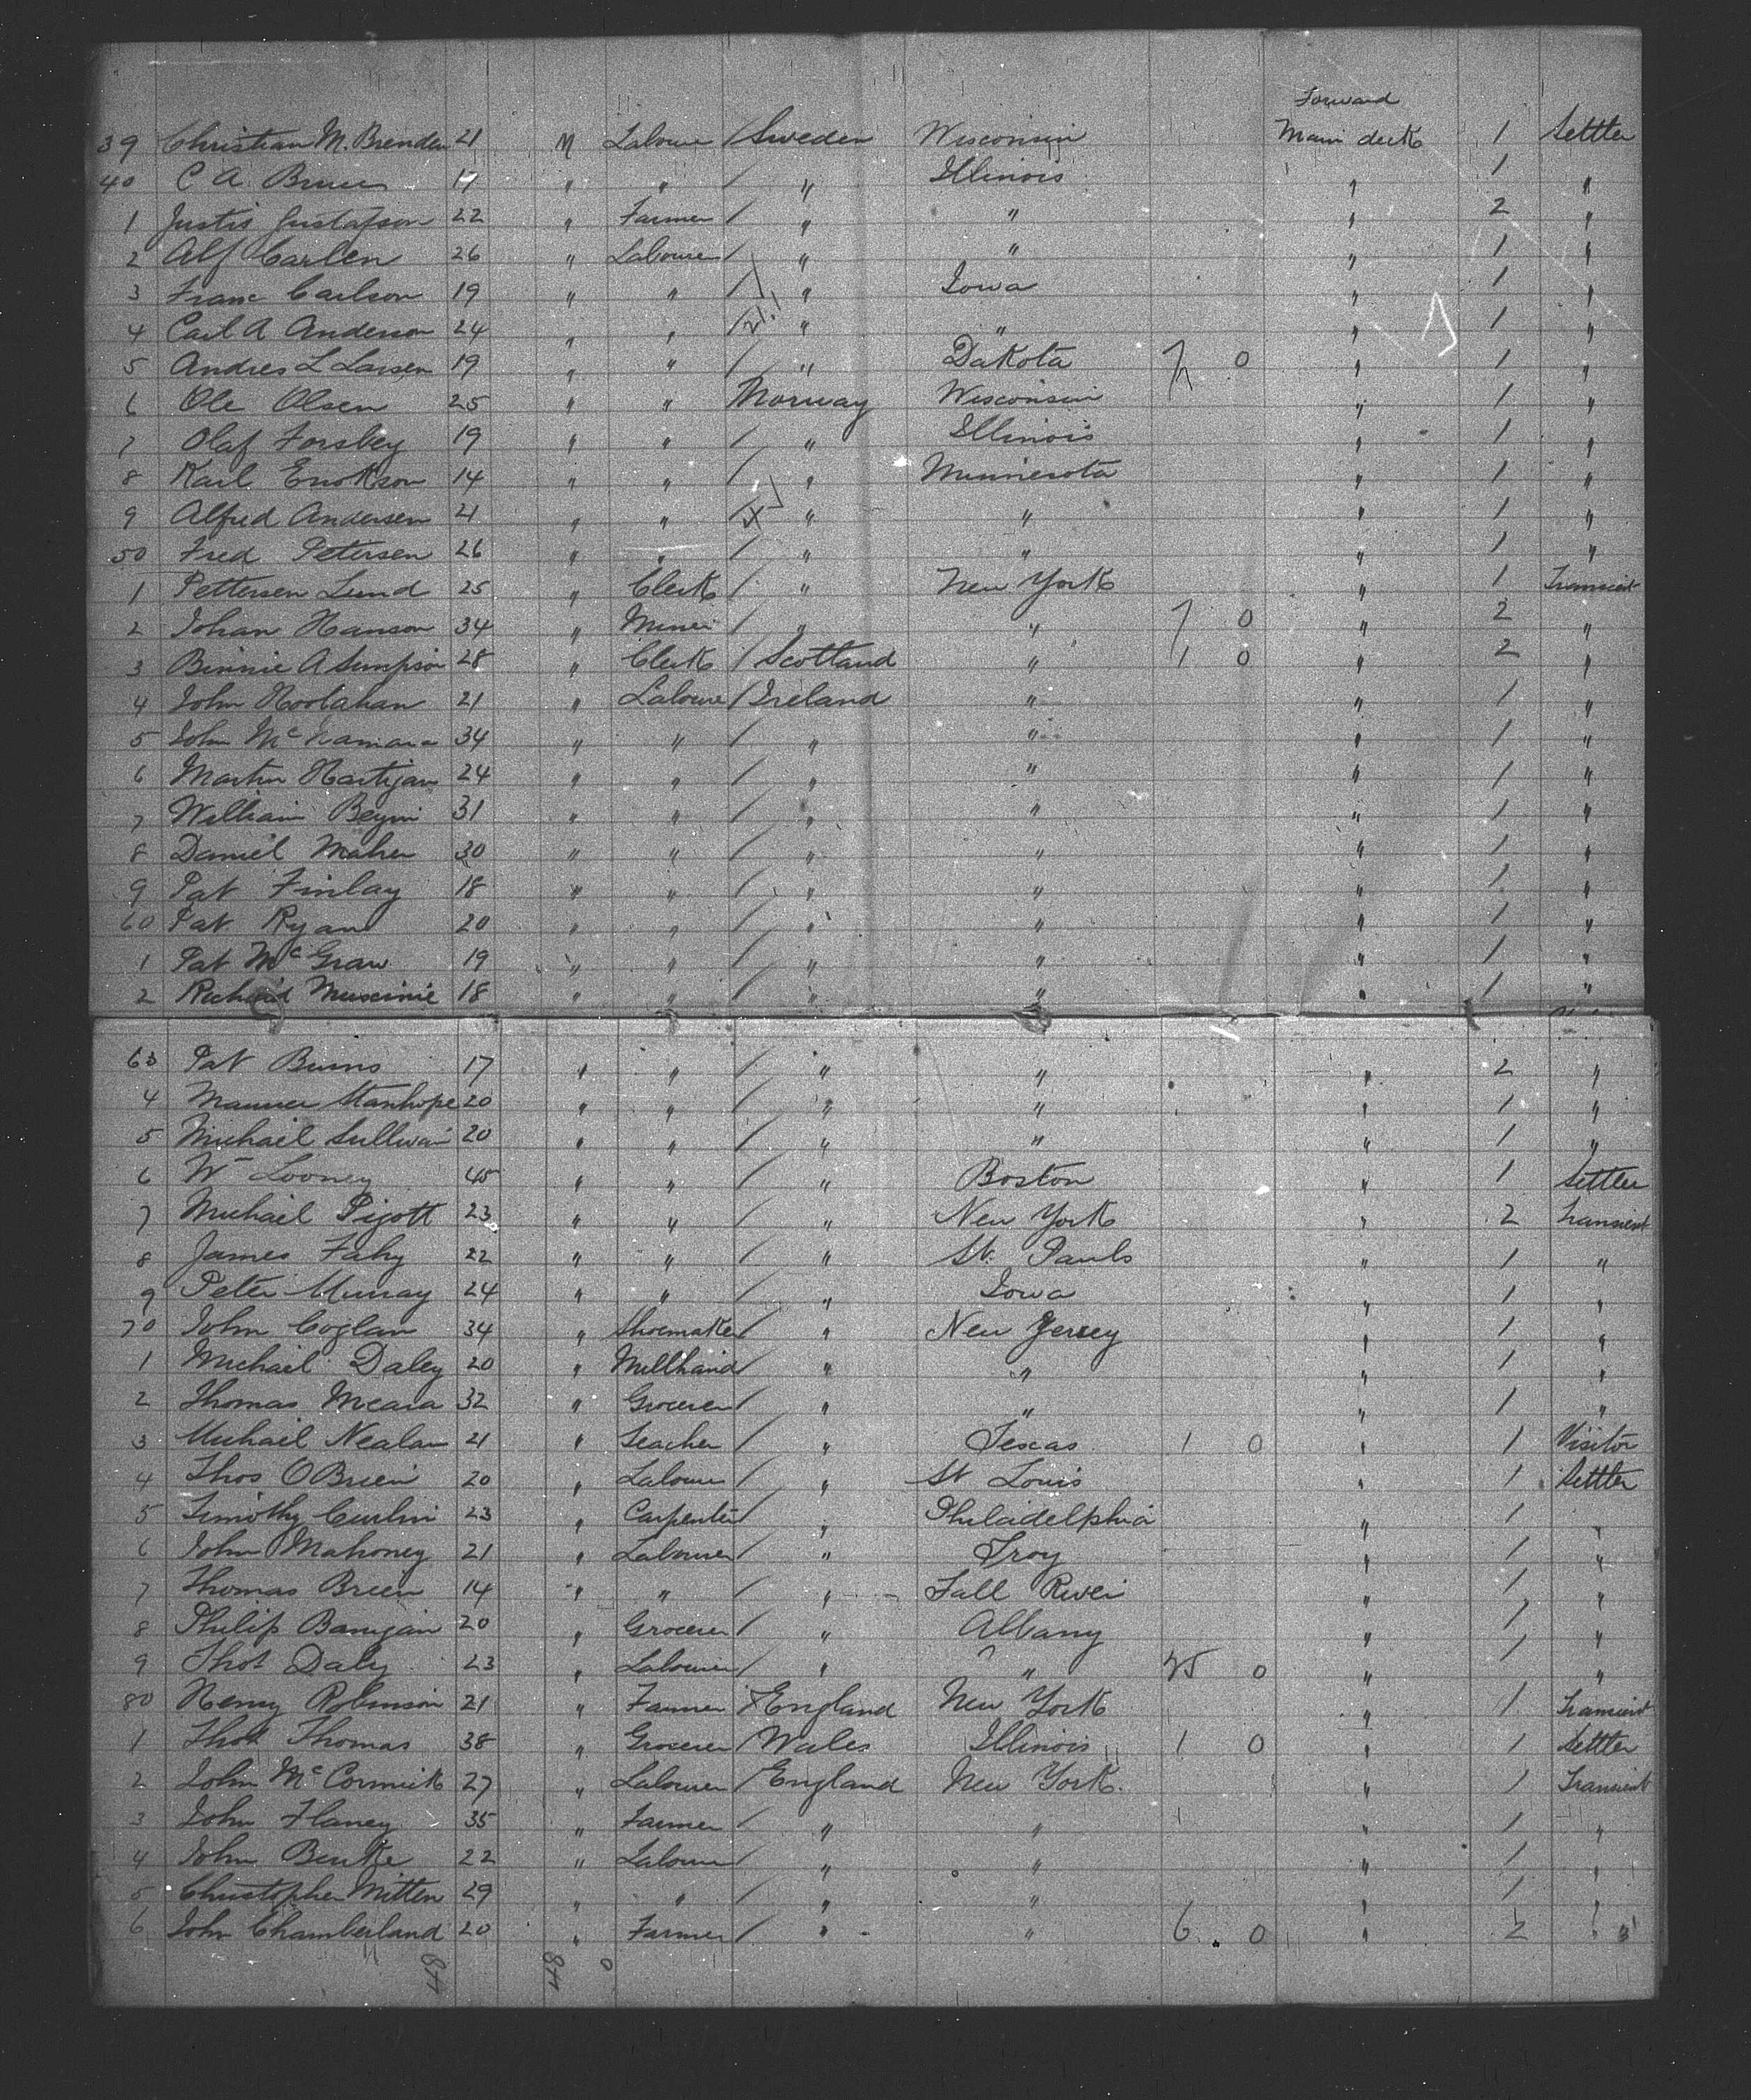 Forward
39 Christian M. Brenden 21 M Labourer / Sweden Wisconsin Main deck 1 Settler
40 C A 17 " " / " Illinois " 1 "
1 Justis Gustafson 22 " Farmer / " " " 2 "
2 Alf Carlen 26 " Labourer / " " " 1 "
3 Franc Carlson 19 " " / " Iowa " 1 "
4 Carl A Anderson 24 " " / " " " 1 "
5 Andres L Larsen 19 " " / " Dakota 0 " 1 "
6 Ole Olsen 25 " " Norway Wisconsin " 1 "
7 Olaf Forsbey 19 " " / " Illinois " 1 "
8 Karl Erickson 14 " " / " Minnesota " 1 "
9 Alfred Andersen 21 " " / " " " 1 "
50 Fred Petersen 26 " " / " " " 1 "
1 Pettersen Lund 25 " Clerk / " New York " 1 Transient
2 Johan Hanson 34 " Miner / " " 7 0 " 2 "
3 Binnie A Simpson 28 " Clerk / Scotland " 1 0 " 2 "
4 John Hoolahan 21 " Labourer / Ireland " " 1 "
5 John McNamara 34 " " / " " " 1 "
6 Martin Hartigan 24 " " / " " " 1 "
7 William 31 " " / " " " 1 "
8 Daniel Maher 30 " " / " " " 1 "
9 Pat Finlay 18 " " / " " " 1 "
60 Pat Ryan 20 " " / " " " 1 "
1 Pat McGraw 19 " " / " " " 1 "
2 Richard 18 " " / " " " 1 "
63 Pat Burns 17 " " / " " " 2 "
4 Maurice Stanhope 20 " " / " " " 1 "
5 Michael Sullivan 20 " " / " " " 1 "
6 Wm Looney 45 " " / " Boston " 1 Settler
7 Michael Pigott 23 " " / " New York " 2 Transient
8 James Fahy 22 " " / " St. Pauls " 1 "
9 Peter Murray 24 " " / " Iowa " 1 "
70 John Coglan 34 " Shoemaker / " New Jersey " 1 "
1 Michael Daley 20 " Millhand / " " " 1 "
2 Thomas Meara 32 " Grocerer / " " " 1 "
3 Michael Nealan 21 " Teacher / " Texas 1 0 " 1 Visitor
4 Thos OBrien 20 " Labourer / " St Louis " 1 Settler
5 Timothy Curlin 23 " Carpenter / " Philadelphia " 1 "
6 John Mahoney 21 " Labourer / " Troy " 1 "
7 Thomas Breen 14 " " / " Fall River " 1 "
8 Philip Banigan 20 " Grocerer / " Albany " 1 "
9 Thos Daly 23 " Labourer / " " 0 " 1 "
80 Henry Robinson 21 " Farmer England New York " 1 Transient
1 Thos Thomas 38 " Grocerer / Wales Illinois 1 0 " 1 Settler
2 John McCormick 27 " Labourer / England New York. " 1 Transient
3 John Flaney 35 " Farmer / " " " 1 "
4 John Burke 22 " Labourer / " " " 1 "
5 Christopher Mitten 29 " " / " " " 1 "
6 John Chamberland 20 " Farmer / " " 6 0 " 2 "
48 48 0